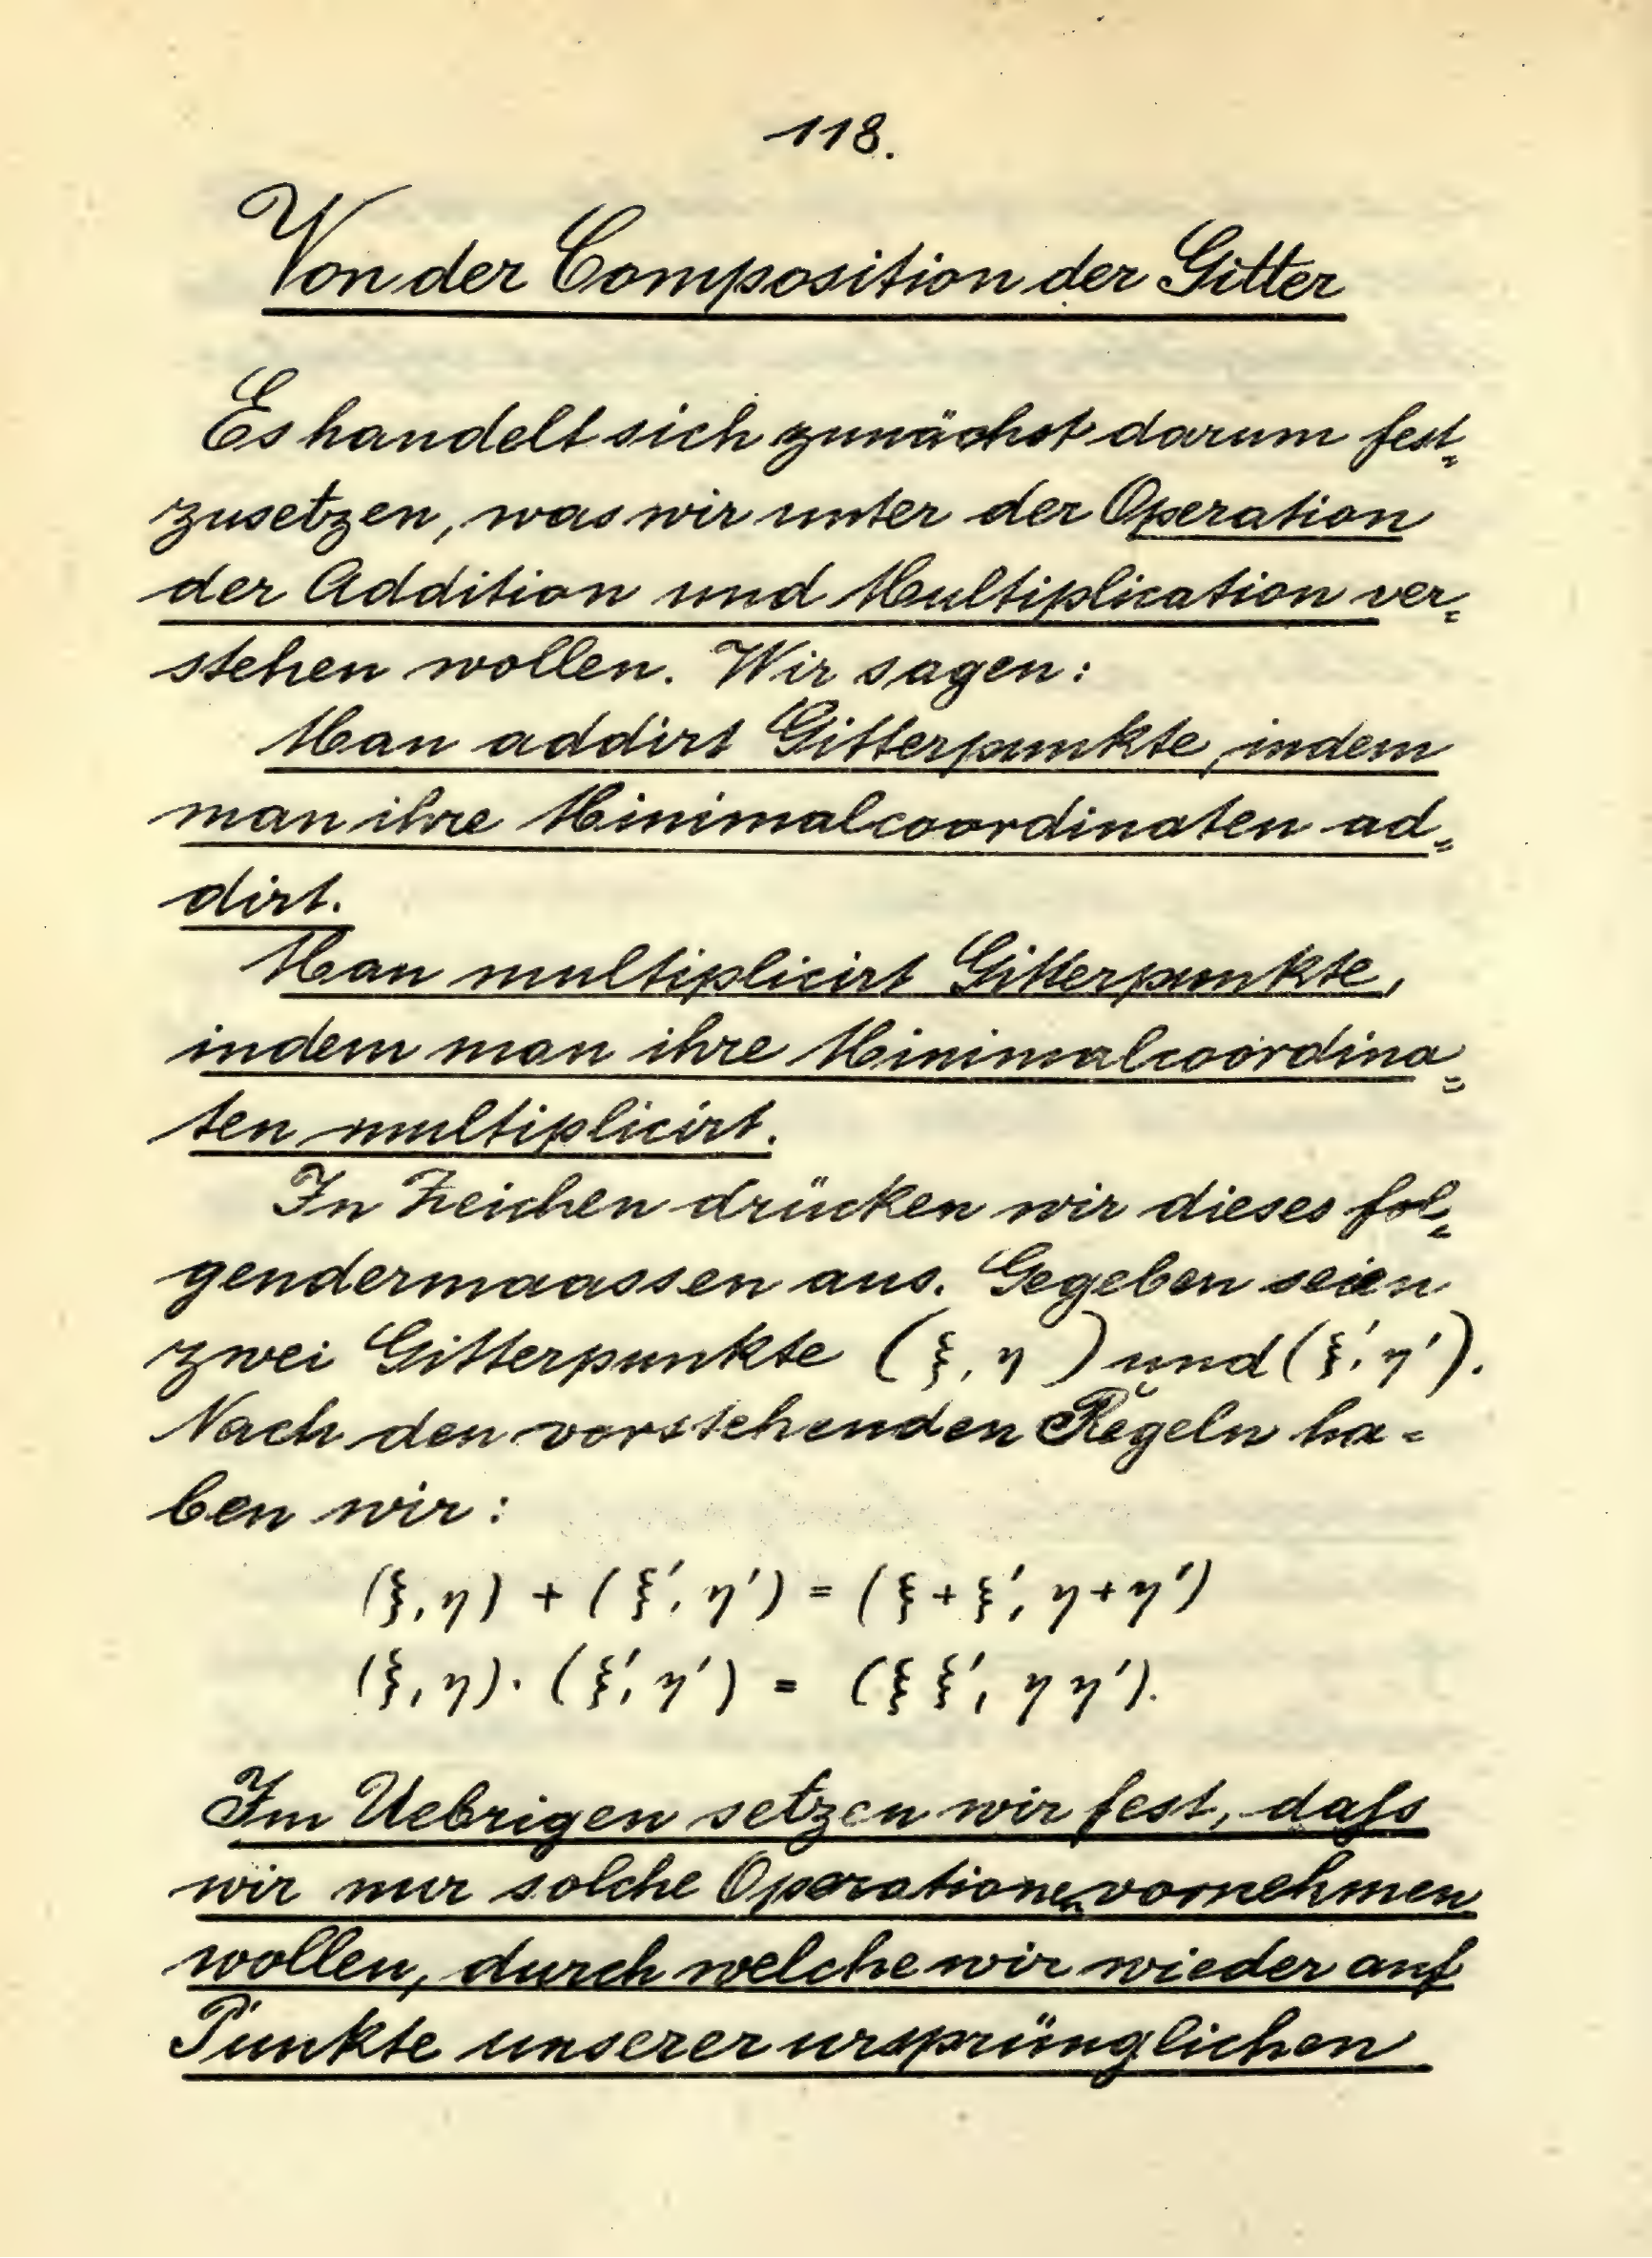 118.
Von der Composition der Gitter
Es handelt sich zunächst darum fest-
zusetzen, was wir unter der Operation
der Addition und Multiplication ver-
stehen wollen. Wir sagen:
Man addirt Gitterpunkte, indem
man ihre Minimalcoordinaten ad-
dirt.
Man multiplicirt Gitterpunkte,
indem man ihre Minimalcoordina-
ten multiplicirt.
In Zeichen drücken wir dieses fol-
gendermaassen aus. Gegeben seien
zwei Gitterpunkte (ξ, η) und (ξ', η').
Nach den vorstehenden Regeln ha-
ben wir:
(ξ, η) + (ξ', η') = (ξ + ξ', η + η')
(ξ, η) · (ξ', η') = (ξ ξ', η η').
Im Uebrigen setzen wir fest, daſs
wir nur solche Operationen vornehmen
wollen, durch welche wir wieder auf
Punkte unserer ursprünglichen